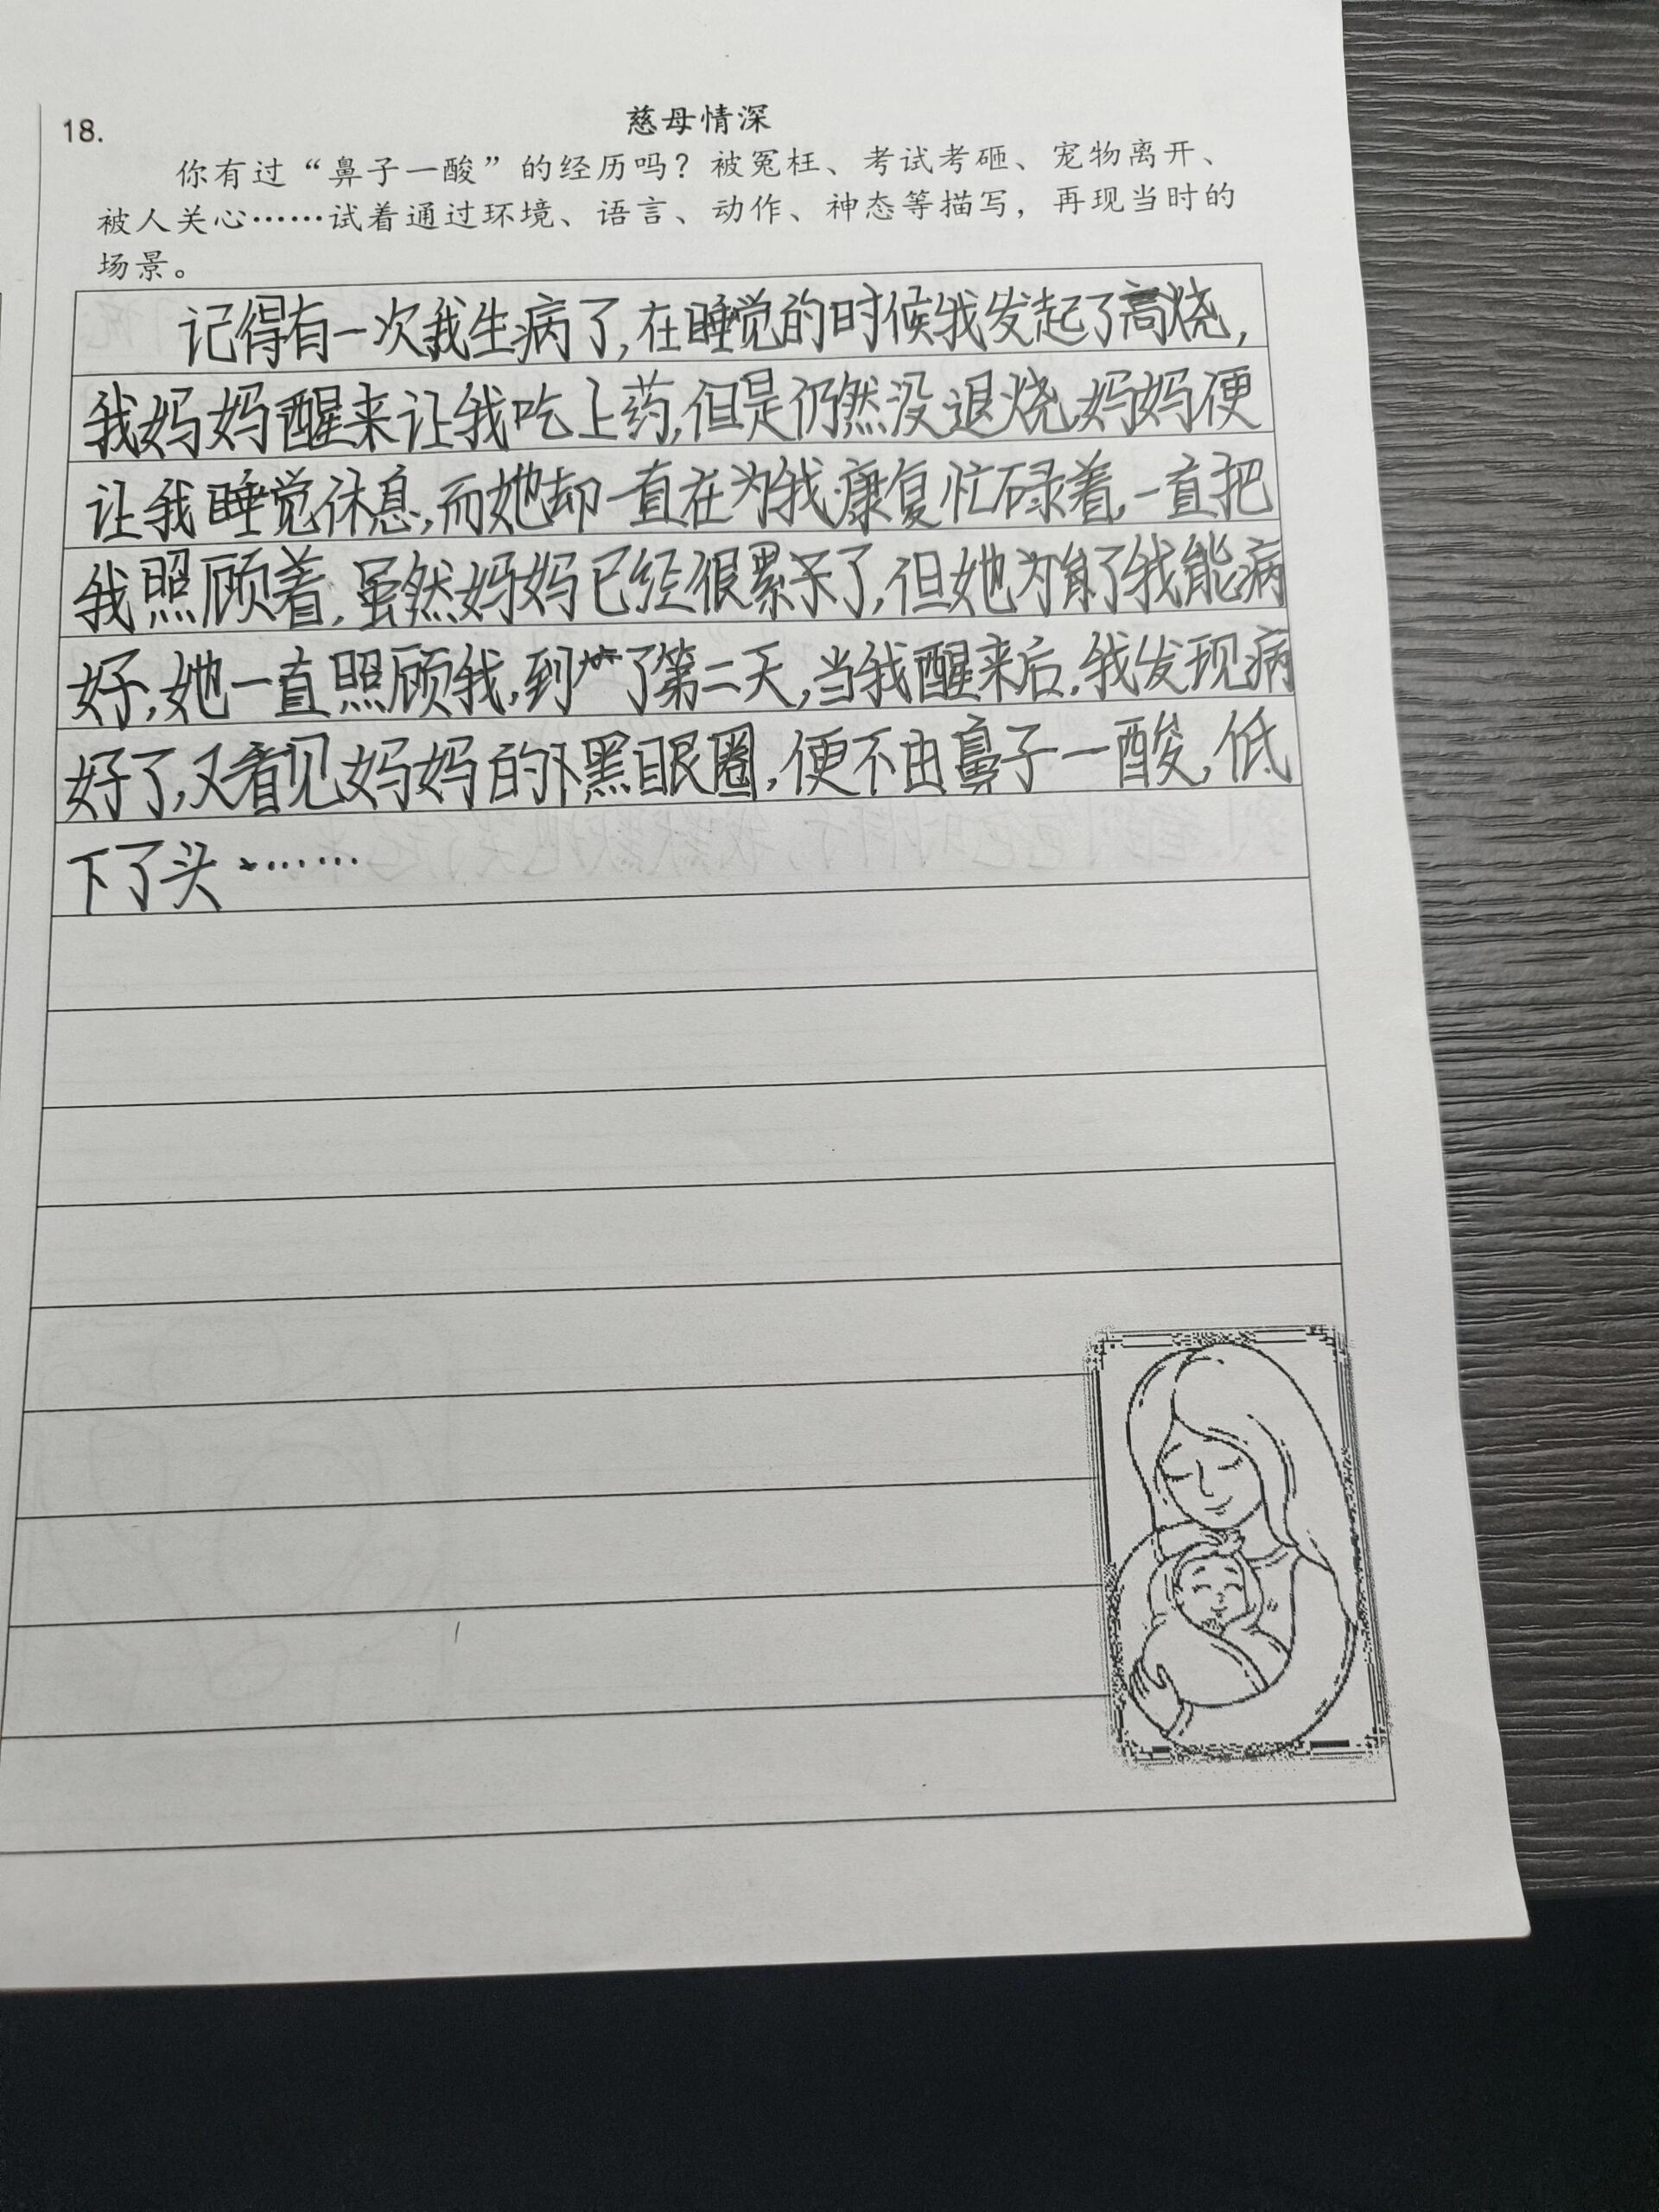 18.
慈母情深
你有过“鼻子一酸”的经历吗？被冤枉、考试考砸、宠物离开、
被人关心……试着通过环境、语言、动作、神态等描写，再现当时的
场景。
记得有一次我生病了,在睡觉的时候我发起了高烧,
我妈妈醒来让我吃上药,但是仍然没退烧,妈妈便
让我睡觉休息,而她却一直在为我康复忙碌着,一直把
我照顾着.虽然妈妈已经很累了,但她为了我能病
好,她一直照顾我,到了第二天,当我醒来后,我发现病
好了,又看见妈妈的黑眼圈,便不由鼻子一酸,低
下了头……